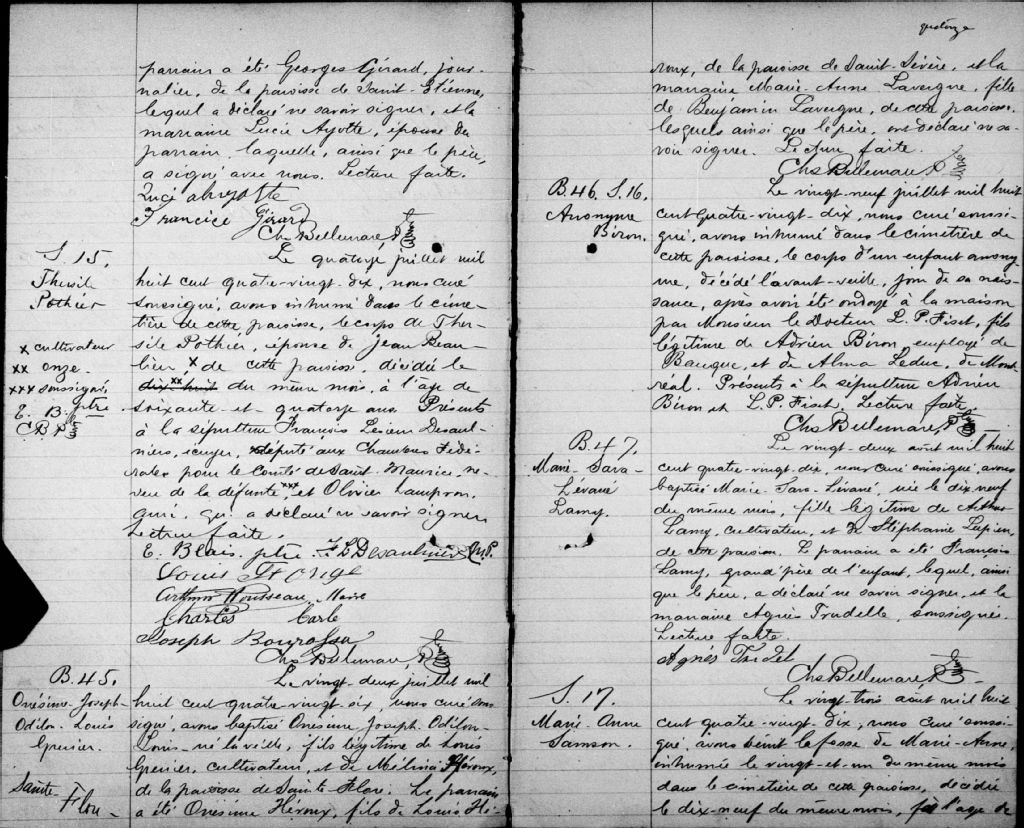 parrain a été Georges Girard, jour-
nalier, de la paroisse de Saint-Etienne,
lequel a déclaré ne savoir signer, et la
marraine Lucie Ayotte, épouse du
parrain, laquelle, ainsi que le père,
a signé avec nous. Lecture faite.
Francice Girard
Chs Bellemare, Ptre
S. 15.
Thersile
Pothier
Le quatorze juillet mil
huit cent quatre-vingt-dix, nous curé
soussigné, avons inhumé dans le cime-
tière de cette paroisse, le corps de Ther-
sile Pothier, épouse de Jean Beau-
lieu, x de cette paroisse, décédée le
dix-huit xx du même mois, à l'âge de
soixante-et-quatorze ans. Présents
à la sépulture François Lesieur Desaul-
niers, écuyer, député aux Chambres Fédé-
rales pour le Comté de Saint-Maurice, ne-
veu de la défunte, xxx et Olivier Lampron,
qui a déclaré ne savoir signer
Lecture faite.
x cultivateur
xx onze
xxx soussigné,
E. B. ptre
C B P
E. Blais, ptre F L Desaulniers, M.P.
Louis St Onge
Arthur Rousseau, Maire
Charles Carle
Joseph Bourassa
Chs Bellemare, Ptre
B. 45.
Onésime-Joseph-
Odilon-Louis
Grenier.
Sainte
Flore
Le vingt-deux juillet mil
huit cent quatre-vingt-dix, nous curé sous-
signé, avons baptisé Onésime-Joseph-Odilon-
Louis, né la veille, fils légitime de Louis
Grenier, cultivateur, et de Mélina Héroux,
de la paroisse de Sainte-Flore. Le parrain
a été Onésime Héroux, fils de Louis Hé-
quatorze
roux, de la paroisse de Saint-Sévère, et la
marraine Marie-Anne Lavergne, fille
de Benjamin Lavergne, de cette paroisse,
lesquels ainsi que le père, ont déclaré ne sa-
voir signer. Lecture faite.
Chs Bellemare, Ptre
B 46. S. 16.
Anonyme
Biron.
Le vingt-neuf juillet mil huit
cent quatre-vingt-dix, nous curé soussi-
gné, avons inhumé dans le cimetière de
cette paroisse, le corps d'un enfant anony-
me, décédé l'avant-veille, jour de sa nais-
sance, après avoir été ondoyé à la maison
par Monsieur le Docteur L. P. Fiset, fils
légitime de Adrien Biron, employé de
Banque, et de Alma Leduc, de Mont-
réal. Présents à la sépulture Adrien
Biron et L. P. Fiset. Lecture faite
Chs Bellemare, Ptre
B 47.
Marie-Sara-
Lévané
Lamy.
Le vingt-deux août mil huit
cent quatre-vingt-dix, nous curé soussigné, avons
baptisé Marie-Sara-Lévané, née le dix-neuf
du même mois, fille légitime de Arthur
Lamy, cultivateur, et de Stéphanie Lupien,
de cette paroisse. Le parrain a été François
Lamy, grand'père de l'enfant, lequel, ainsi
que le père, a déclaré ne savoir signer, et la
marraine Agnès Trudelle, soussignée.
Lecture faite.
Agnès Trudel
Chs Bellemare, Ptre
S. 17.
Marie-Anne
Samson.
Le vingt-trois août mil huit
cent quatre-vingt-dix, nous curé soussi-
gné, avons béni la fosse de Marie-Anne,
inhumée le vingt-et-un du même mois
dans le cimetière de cette paroisse, décédée
le dix-neuf du même mois, à l'âge de